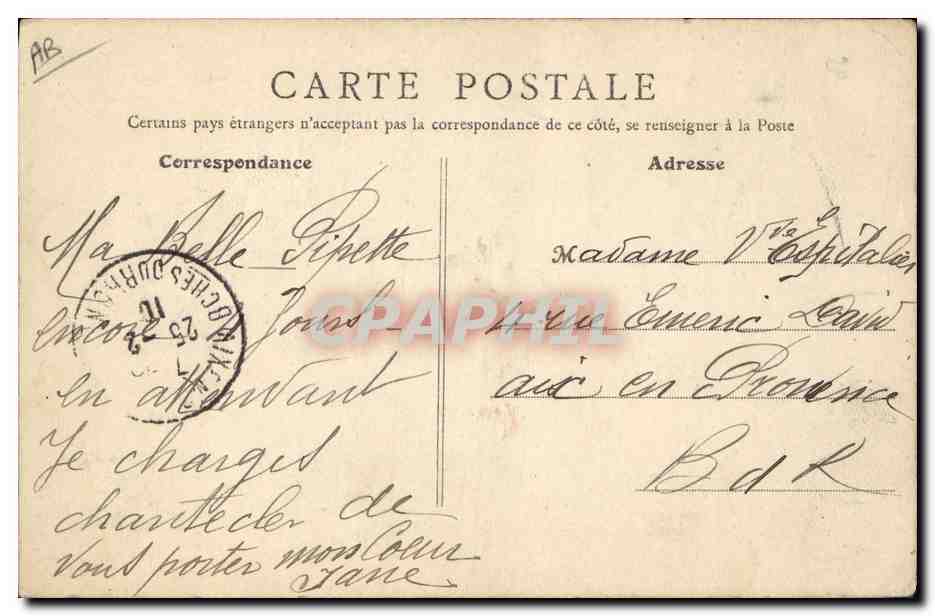 AB
CARTE POSTALE
Certains pays étrangers n'acceptant pas la correspondance de ce côté, se renseigner à la Poste
Correspondance
Ma Belle Pipette
encore Jours
en attendant
Je charges
chantecler de
vous porter mon Coeur
Jane
Adresse
Madame Vve Espitalier
4 rue Emeric David
aix en Provence
B d R
CPAPHIL
BCHES DU RHONE
25